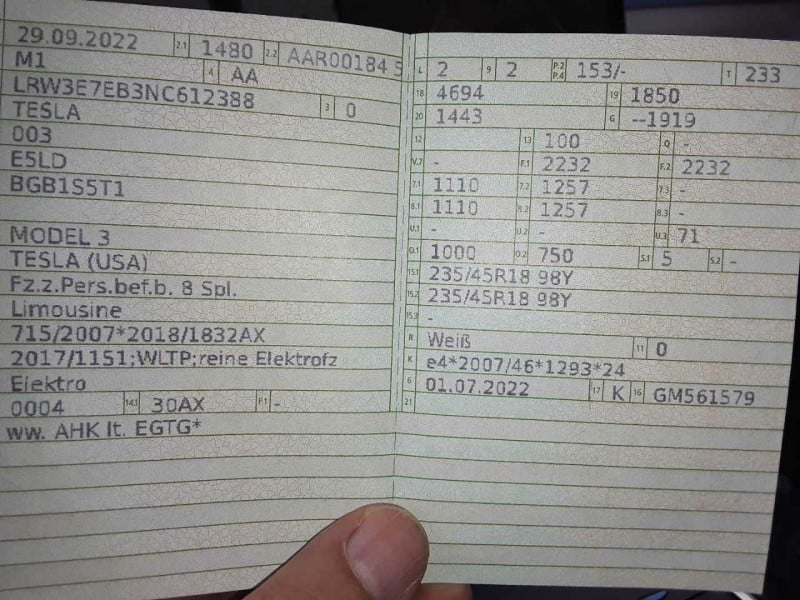 29.09.2022 2.1 1480 2.2 AAR00184 5
M1 4 AA
LRW3E7EB3NC612388 3 0
TESLA
003
E5LD
BGB1S5T1
MODEL 3
TESLA (USA)
Fz.z.Pers.bef.b. 8 Spl.
Limousine
715/2007*2018/1832AX
2017/1151;WLTP;reine Elektrofz
Elektro
0004 14.1 30AX P.1 -
ww. AHK lt. EGTG*
L 2 9 2 P.2 P.4 153/- T 233
18 4694 19 1850
20 1443 G --1919
12 13 100 Q -
V.7 - F.1 2232 F.2 2232
7.1 1110 7.2 1257 7.3 -
8.1 1110 8.2 1257 8.3 -
U.1 - U.2 - U.3 71
O.1 1000 O.2 750 S.1 5 S.2 -
15.1 235/45R18 98Y
15.2 235/45R18 98Y
15.3 -
R Weiß 11 0
K e4*2007/46*1293*24
6 01.07.2022 17 K 16 GM561579
21